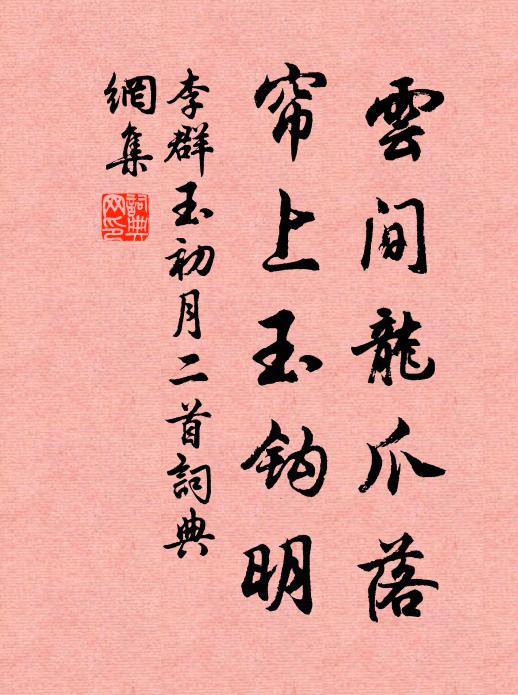 雲間龍爪落
帘上玉鈎明
李群玉初月二首詞典
網集
詞典
网印